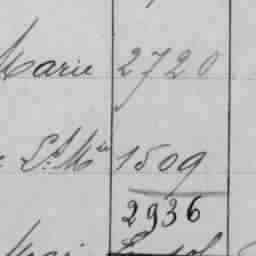 Marie 2720
St Mie 1509
2936